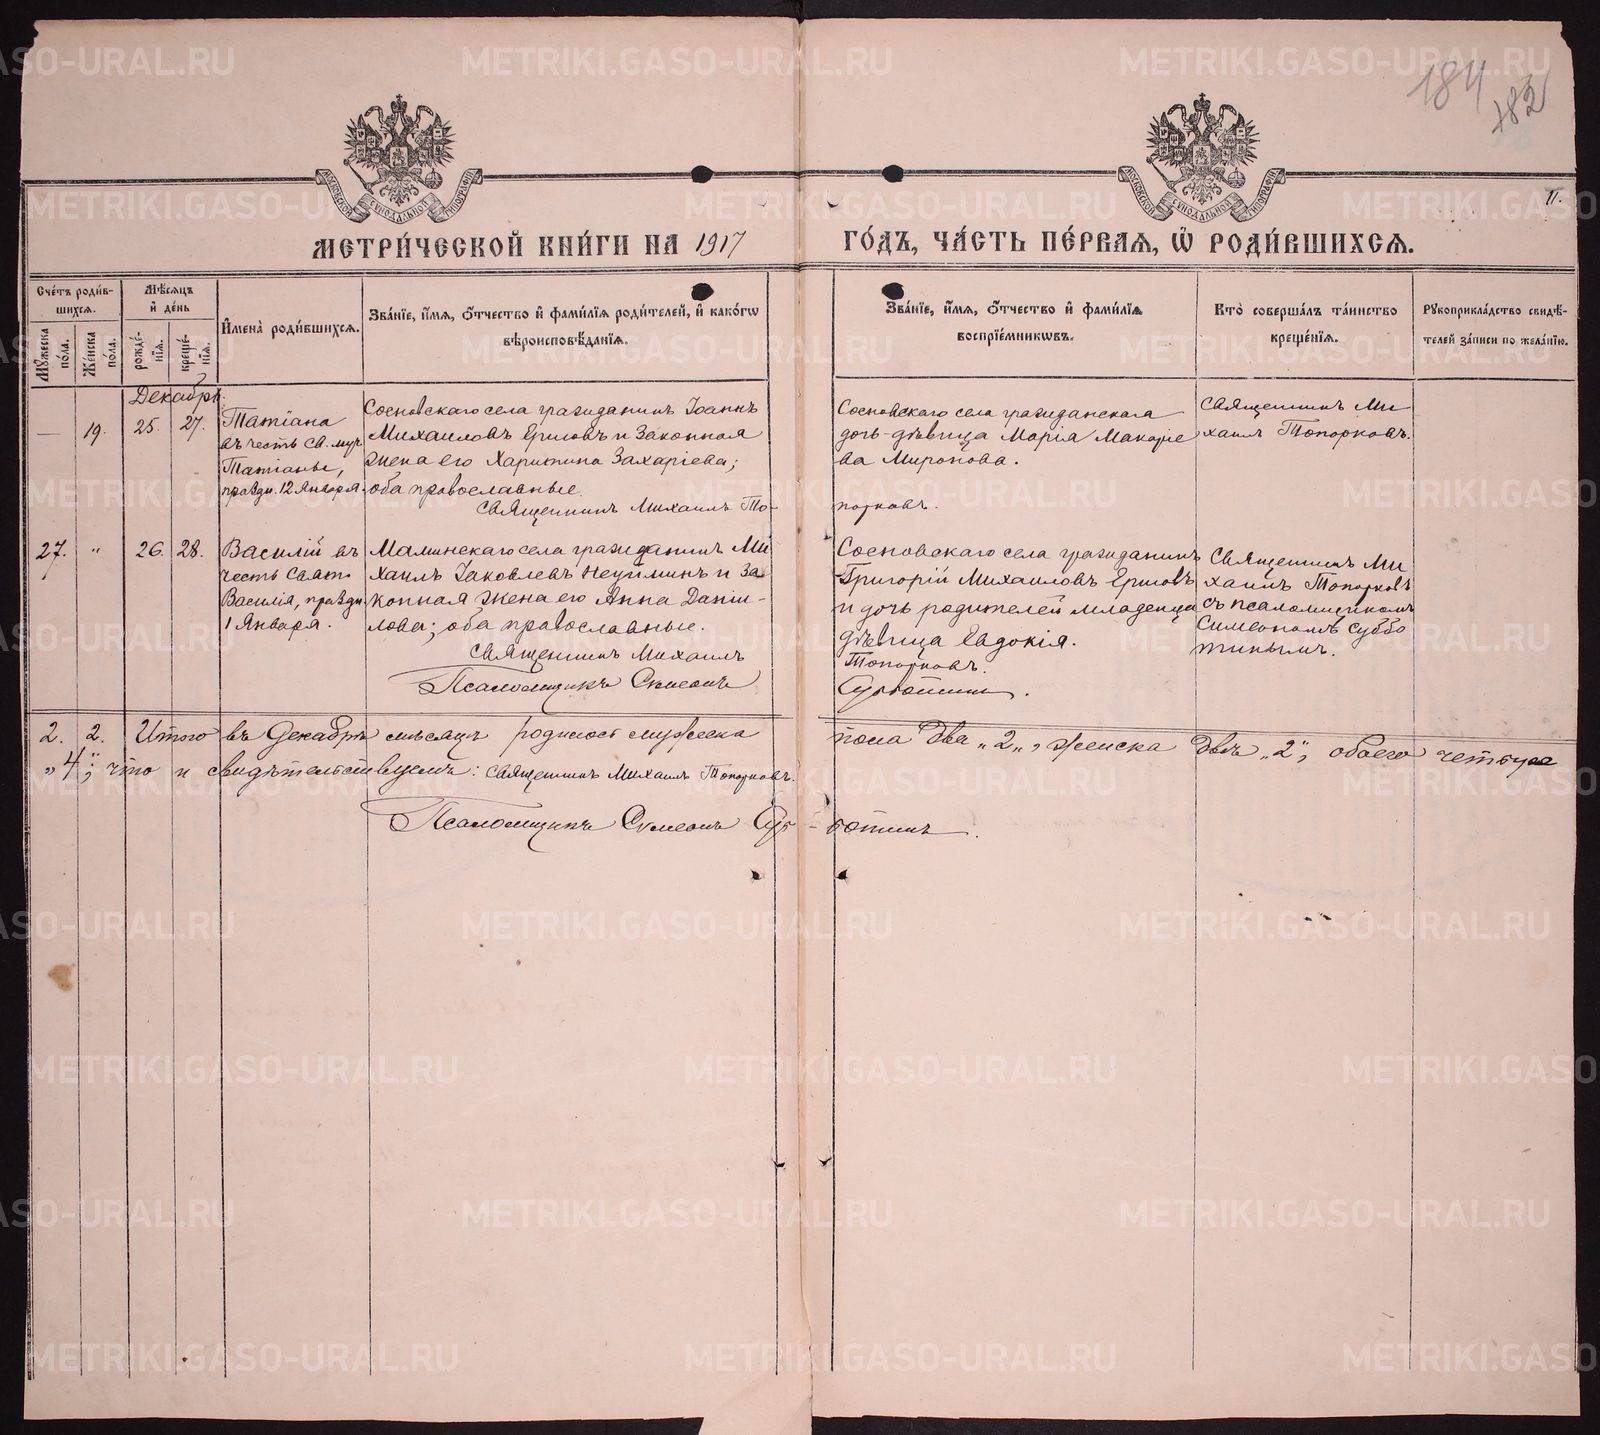 184
182
МОСКОВСКОЙ СѴНОДАЛЬНОЙ ТИПОГРАФІИ
МОСКОВСКОЙ СѴНОДАЛЬНОЙ ТИПОГРАФІИ
11.
МЕТРИ́ЧЕСКОЙ КНИ́ГИ НА 1917 ГО́ДЪ, ЧА́СТЬ ПЕ́РВАѦ, Ѡ҆ РОДИ́ВШИХСѦ.
Сче́тъ роди́в-
шихсѧ.
Мꙋ́жеска по́ла.
Же́нска по́ла.
Мѣ́сѧцъ
и҆ де́нь
рожде́-
нїѧ.
креще́-
нїѧ.
И҆мена̀ роди́вшихсѧ.
Зва́нїе, и҆́мѧ, ѻ҆́тчество и҆ фами́лїѧ роди́телей, и҆ како́гѡ
вѣроисповѣ́данїѧ.
Зва́нїе, и҆́мѧ, ѻ҆́тчество и҆ фами́лїѧ
воспрїе́мникѡвъ.
Кто̀ соверша́лъ та́инство
креще́нїѧ.
Рꙋкоприкла́дство свидѣ́-
телей за́писи по жела́нїю.
Декабрь.
— 19. 25. 27.
Татіана
въ честь св. муч.
Татіаны,
праздн. 12 Января.
Сосновскаго села гражданинъ Іоаннъ
Михаиловъ Ершовъ и законная
жена его Харитина Захаріева;
оба православные.
Священникъ Михаилъ То-
порковъ.
Сосновскаго села гражданская
дочь-дѣвица Марія Макаріе
ва Миронова.
Священникъ Ми
хаилъ Топорковъ.
27. " 26. 28.
Василій въ
честь Свят.
Василія, праздн.
1 Января.
Маминскаго села гражданинъ Ми
хаилъ Іаковлевъ Неуйминъ и за
конная жена его Анна Даніи-
лова; оба православные.
Священникъ Михаилъ
Топорковъ.
Псаломщикъ Симеонъ
Субботинъ.
Сосновскаго села гражданинъ
Григорій Михаиловъ Ершовъ
и дочь родителей младенца
дѣвица Евдокія.
Священникъ Ми
хаилъ Топорковъ
съ псаломщикомъ
Симеономъ Суббо
тинымъ.
2. 2. Итого въ Декабрѣ мѣсяцѣ родилось мужеска пола два „2„, женска двѣ „2", обоего четыре
„4"; что и свидѣтельствуемъ: Священникъ Михаилъ Топорковъ.
Псаломщикъ Симеонъ Суб-ботинъ.
METRIKI.GASO-URAL.RU